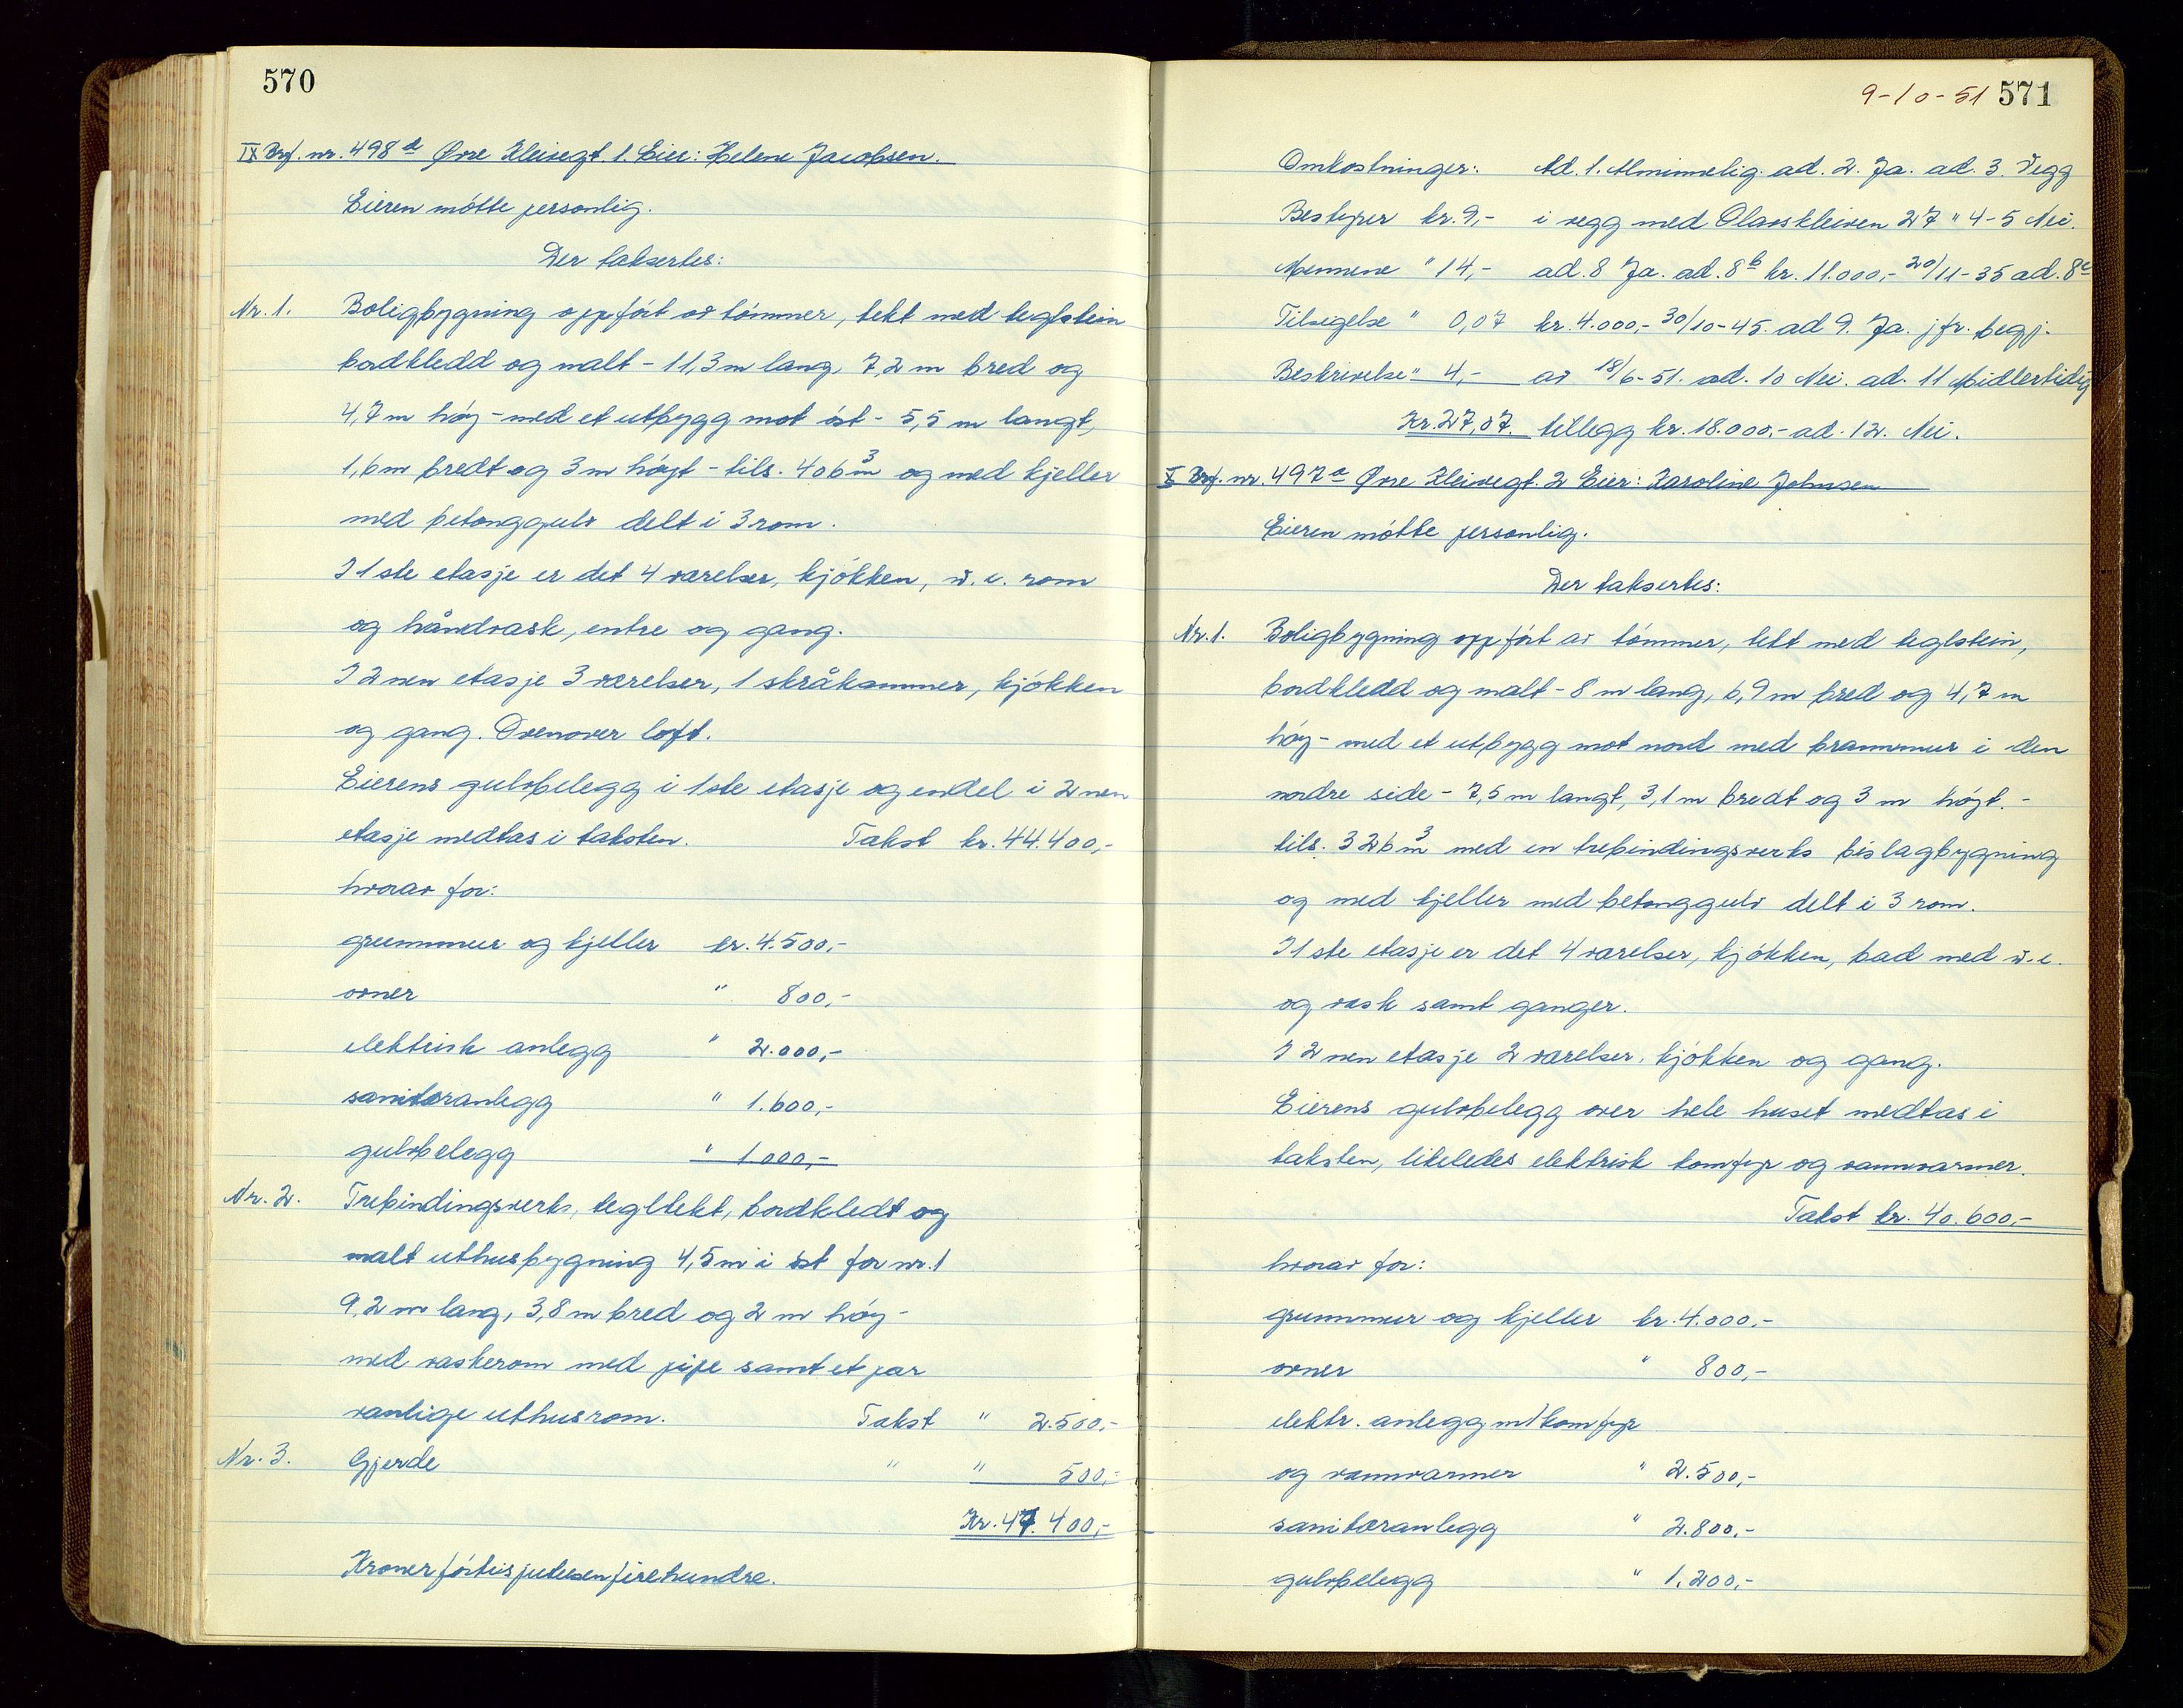 570
IX Brf. nr. 498 d Øvre Kleivegt. 1. Eier: Helene Jacobsen.
Eieren møtte personlig.
Der taksertes:
Nr. 1. Boligbygning oppført av tømmer, tekt med teglstein
bordkledd og malt - 11,3 m lang, 7,2 m bred og
4,7 m høy - med et utbygg mot øst - 5,5 m langt,
1,6 m bredt og 3 m høyt - tils. 406 m³ og med kjeller
med betonggulv delt i 3 rom.
I 1ste etasje er det 4 værelser, kjøkken, w.c. rom
og håndvask, entre og gang.
I 2nen etasje 3 værelser, 1 skråkammer, kjøkken
og gang. Ovenover loft.
Eierens gulvbelegg i 1ste etasje og endel i 2nen
etasje medtas i taksten. Takst kr. 44.400,-
hvorav for:
grunnmur og kjeller kr. 4.500,-
ovner " 800,-
elektrisk anlegg " 2.000,-
sanitæranlegg " 1.600,-
gulvbelegg " 1.000,-
Nr. 2. Trebindingsverks, tegltekt, bordkledt og
malt uthusbygning 4,5 m i øst for nr. 1
9,2 m lang, 3,8 m bred og 2 m høy -
med vaskerom med pipe samt et par
vanlige uthusrom. Takst " 2.500,-
Nr. 3. Gjerde " " 500,-
Kr. 47.400,-
Kroner førtisjutusenfirehundre.
9-10-51 571
Omkostninger: Ad. 1. Alminnelig. ad. 2. Ja. ad. 3. Vegg
Bestyrer kr. 9,- i vegg med Olavskleiven 27 " 4-5 Nei.
Mennene " 14,- ad. 8 Ja. ad. 8 b kr. 11.000,- 20/11-35 ad. 8 c
Tilsigelse " 0,07 kr. 4.000,- 30/10-45. ad 9. Ja. jfr. begj.
Beskrivelse " 4,- av 18/6-51. ad. 10 Nei. ad. 11 Midlertidig
Kr. 27,07. tillegg kr. 18.000,- ad. 12. Nei.
X Brf. nr. 497 a Øvre Kleivegt. 2 Eier: Karoline Johnsen
Eieren møtte personlig.
Der taksertes:
Nr. 1. Boligbygning oppført av tømmer, tekt med teglstein,
bordkledd og malt - 8 m lang, 6,9 m bred og 4,7 m
høy - med et utbygg mot nord med brannmur i den
nordre side - 7,5 m langt, 3,1 m bredt og 3 m høyt. -
tils. 326 m³ med en trebindingsverks bislagbygning
og med kjeller med betonggulv delt i 3 rom.
I 1ste etasje er det 4 værelser, kjøkken, bad med w.c.
og vask samt ganger.
I 2nen etasje 2 værelser, kjøkken og gang.
Eierens gulvbelegg over hele huset medtas i
taksten, likeledes elektrisk komfyr og vannvarmer.
Takst kr. 40.600,-
hvorav for:
grunnmur og kjeller kr. 4.000,-
ovner " 800,-
elektr. anlegg m/komfyr
og vannvarmer " 2.500,-
sanitæranlegg " 2.800,-
gulvbelegg " 1.200,-